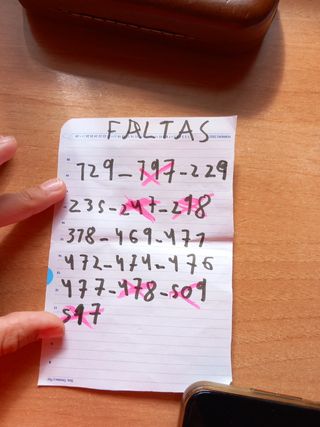 FALTAS
129-797-229
235-247-298
378-469-471
472-474-476
477-478-509
597